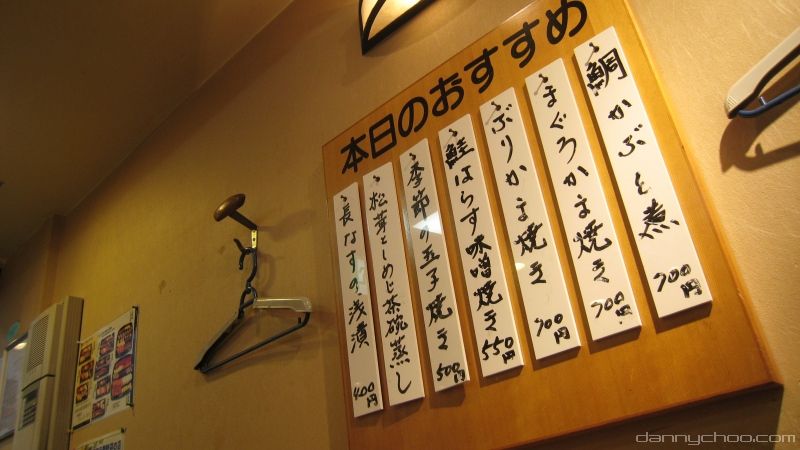 本日のおすすめ
鯛かぶと煮 700円
まぐろかま焼き 700円
ぶりかま焼き 700円
鮭はらす味噌焼き 550円
季節の玉子焼き 500円
松茸としめじ茶碗蒸し
長なすの浅漬 400円
dannychoo.com